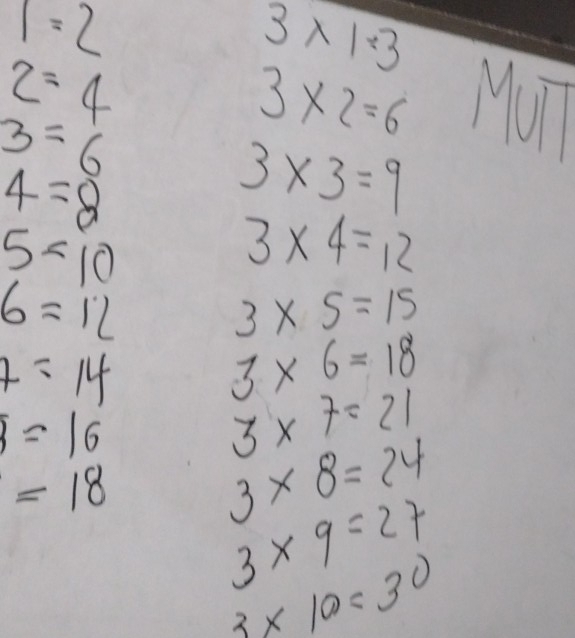 1 = 2
2 = 4
3 = 6
4 = 8
5 = 10
6 = 12
7 = 14
8 = 16
= 18
3 x 1 = 3
3 x 2 = 6
3 x 3 = 9
3 x 4 = 12
3 x 5 = 15
3 x 6 = 18
3 x 7 = 21
3 x 8 = 24
3 x 9 = 27
3 x 10 = 30
MUIT